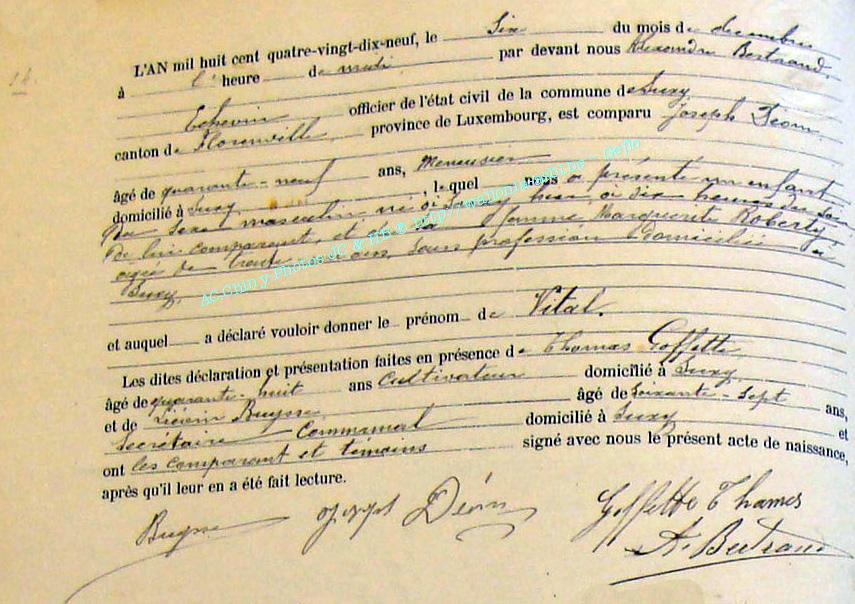 14.
L'AN mil huit cent quatre-vingt-dix-neuf, le six du mois de décembre
à l' heure de midi par devant nous Alexandre Bertrand,
Echevin officier de l'état civil de la commune de Suxy
canton de Florenville, province de Luxembourg, est comparu Joseph Déom
âgé de quarante-neuf ans, Menuisier
domicilié à Suxy, lequel nous a présenté un enfant
du sexe masculin né à Suxy hier, à six heures du soir
de lui comparant, et de sa femme Marguerite Roberty,
agée de trente ans, sans profession domiciliée à
Suxy,
et auquel a déclaré vouloir donner le prénom de Vital.
Les dites déclaration et présentation faites en présence de Thomas Goffette,
âgé de quarante-huit ans Cultivateur domicilié à Suxy,
et de Liévin Buysse, âgé de soixante-sept ans,
Secrétaire Communal domicilié à Suxy et
ont les comparant et témoins signé avec nous le présent acte de naissance,
après qu'il leur en a été fait lecture.
Buysse Joseph Déom Goffette Thomas
A. Bertrand